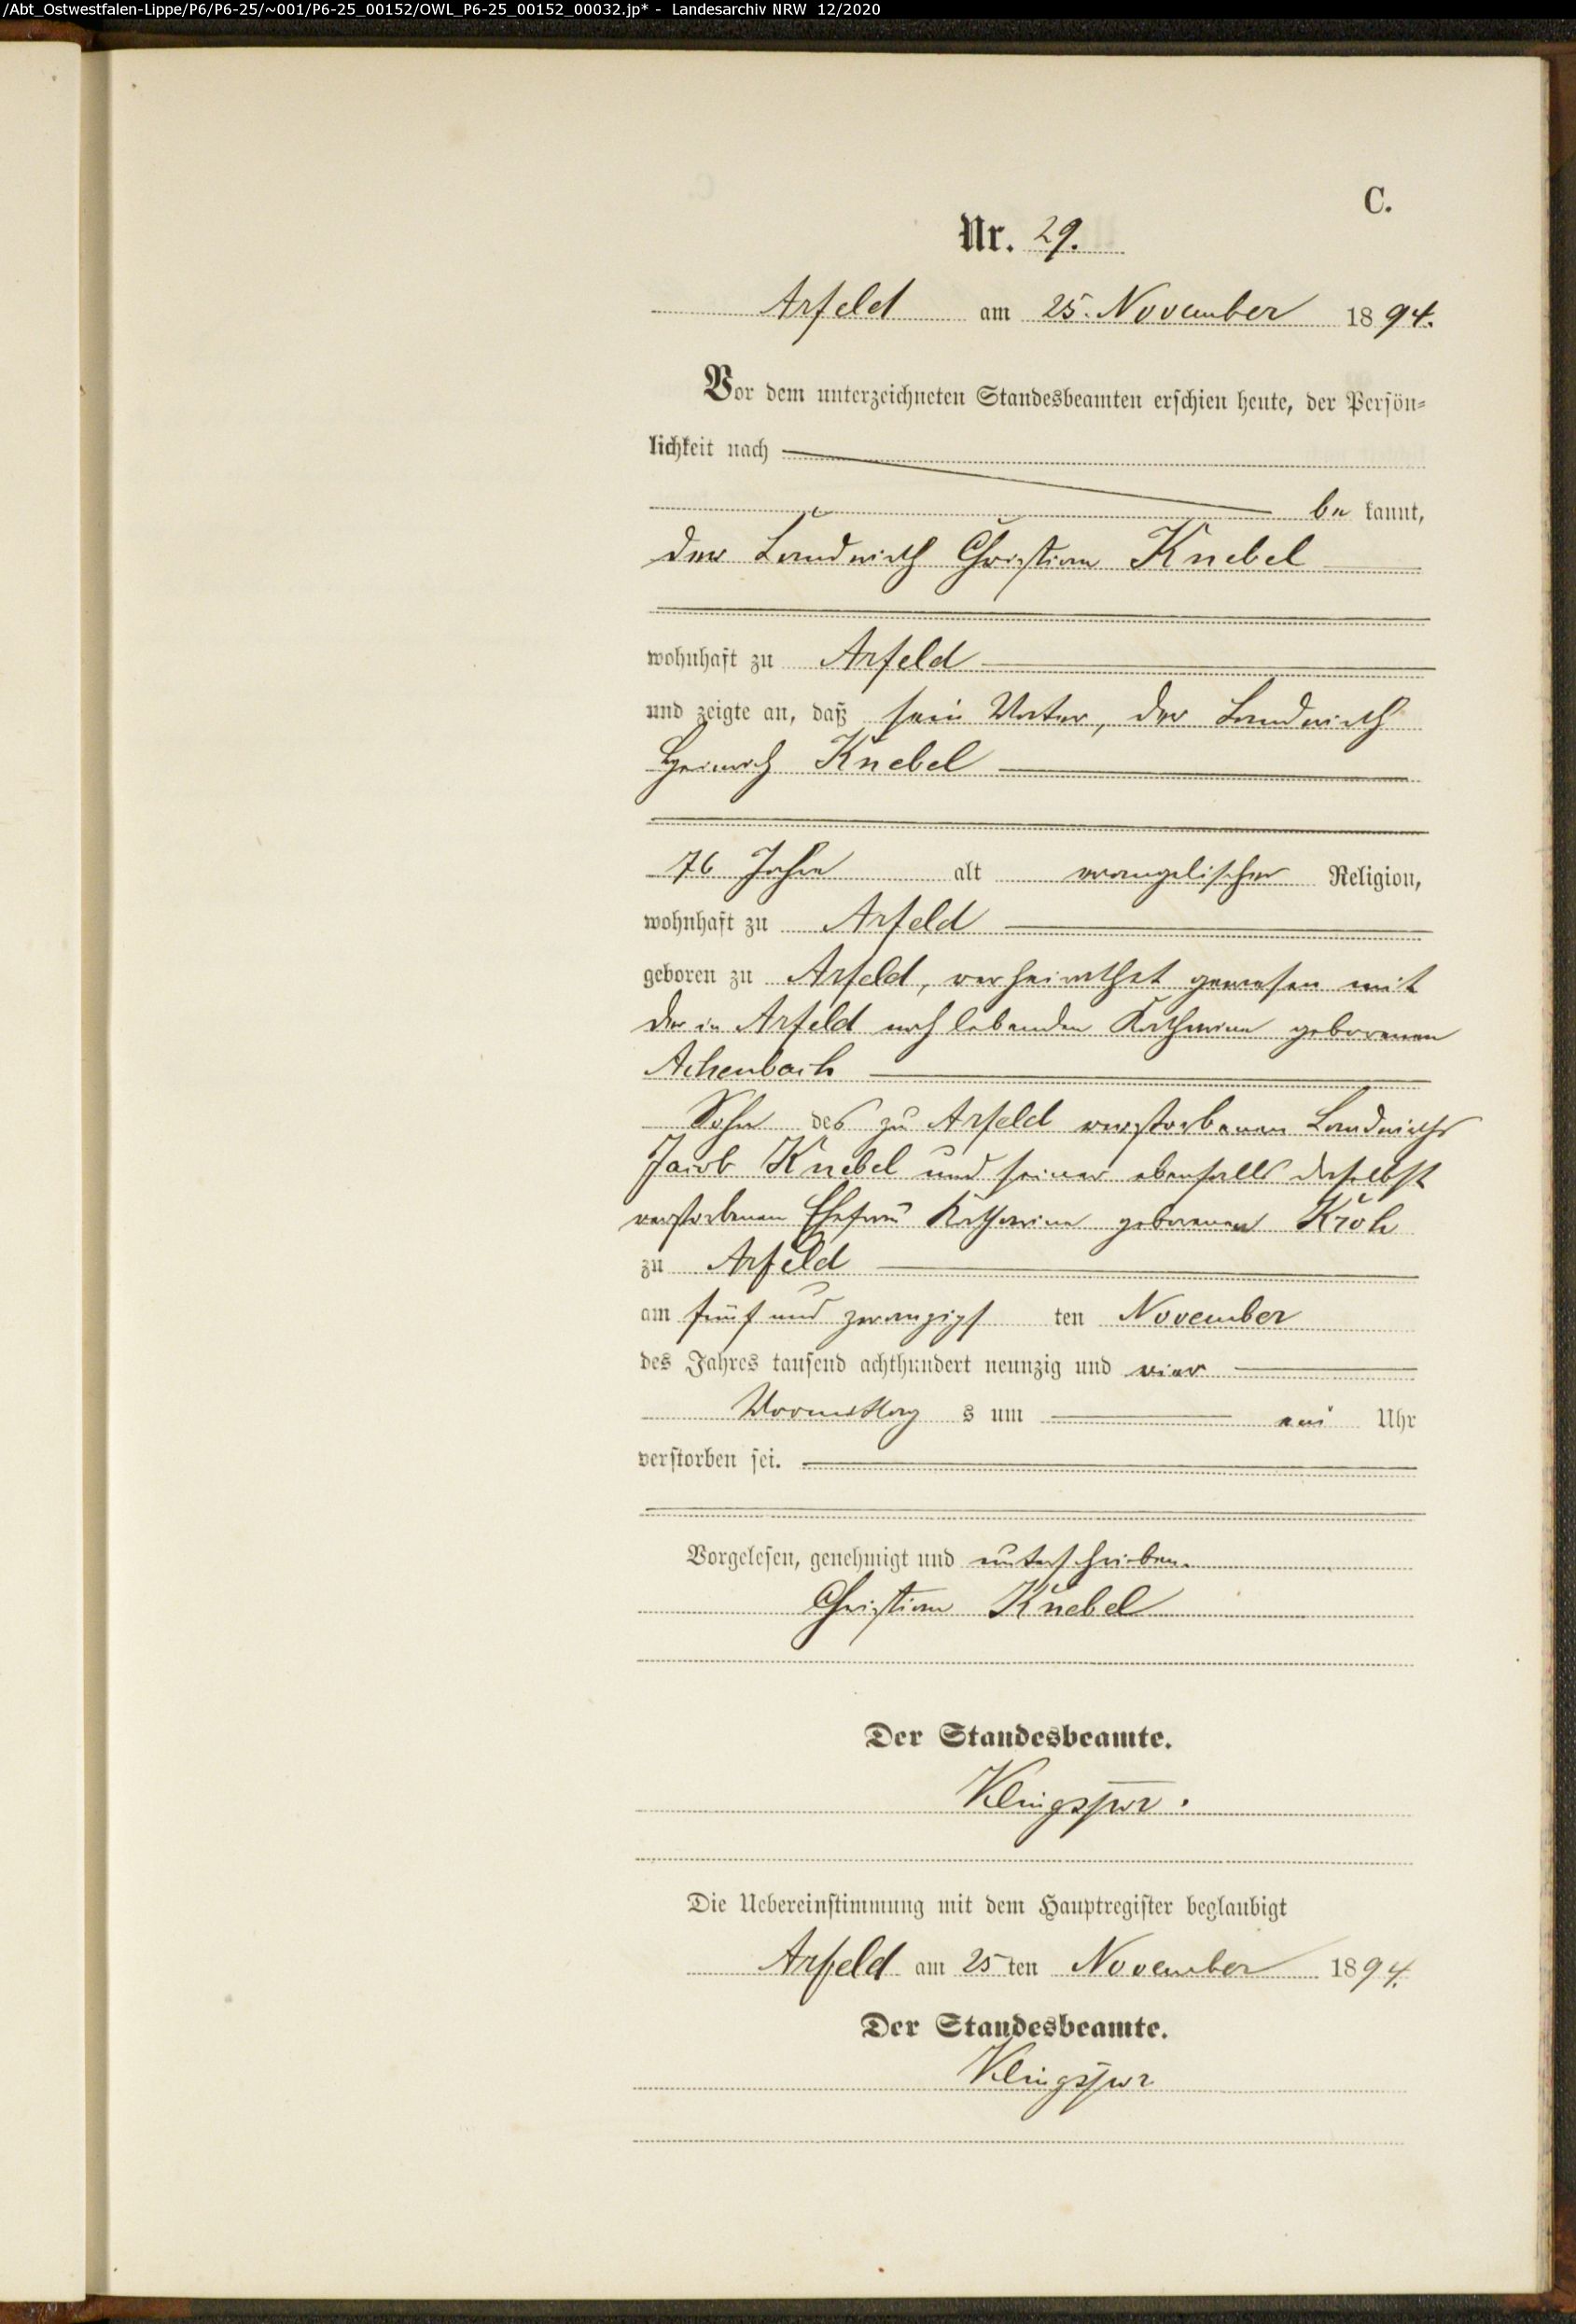 /Abt_Ostwestfalen-Lippe/P6/P6-25/~001/P6-25_00152/OWL_P6-25_00152_00032.jp* - Landesarchiv NRW 12/2020
C.
Nr. 29.
Arfeld am 25. November 1894.
Vor dem unterzeichneten Standesbeamten erschien heute, der Persön-
lichkeit nach
be kannt,
der Landwirth Christian Knebel
wohnhaft zu Arfeld
und zeigte an, daß sein Vater, der Landwirth
Heinrich Knebel
76 Jahre alt evangelischer Religion,
wohnhaft zu Arfeld
geboren zu Arfeld, verheirathet gewesen mit
der in Arfeld noch lebenden Katharine geborenen
Achenbach
Sohn des zu Arfeld verstorbenen Landwirths
Jacob Knebel und seiner ebenfalls daselbst
verstorbenen Ehefrau Katharine geborenen Kroh
zu Arfeld
am fünf und zwanzigst ten November
des Jahres tausend achthundert neunzig und vier
Vormittag s um ein Uhr
verstorben sei.
Vorgelesen, genehmigt und unterschrieben.
Christian Knebel
Der Standesbeamte.
Klingspor.
Die Uebereinstimmung mit dem Hauptregister beglaubigt
Arfeld am 25 ten November 1894.
Der Standesbeamte.
Klingspor